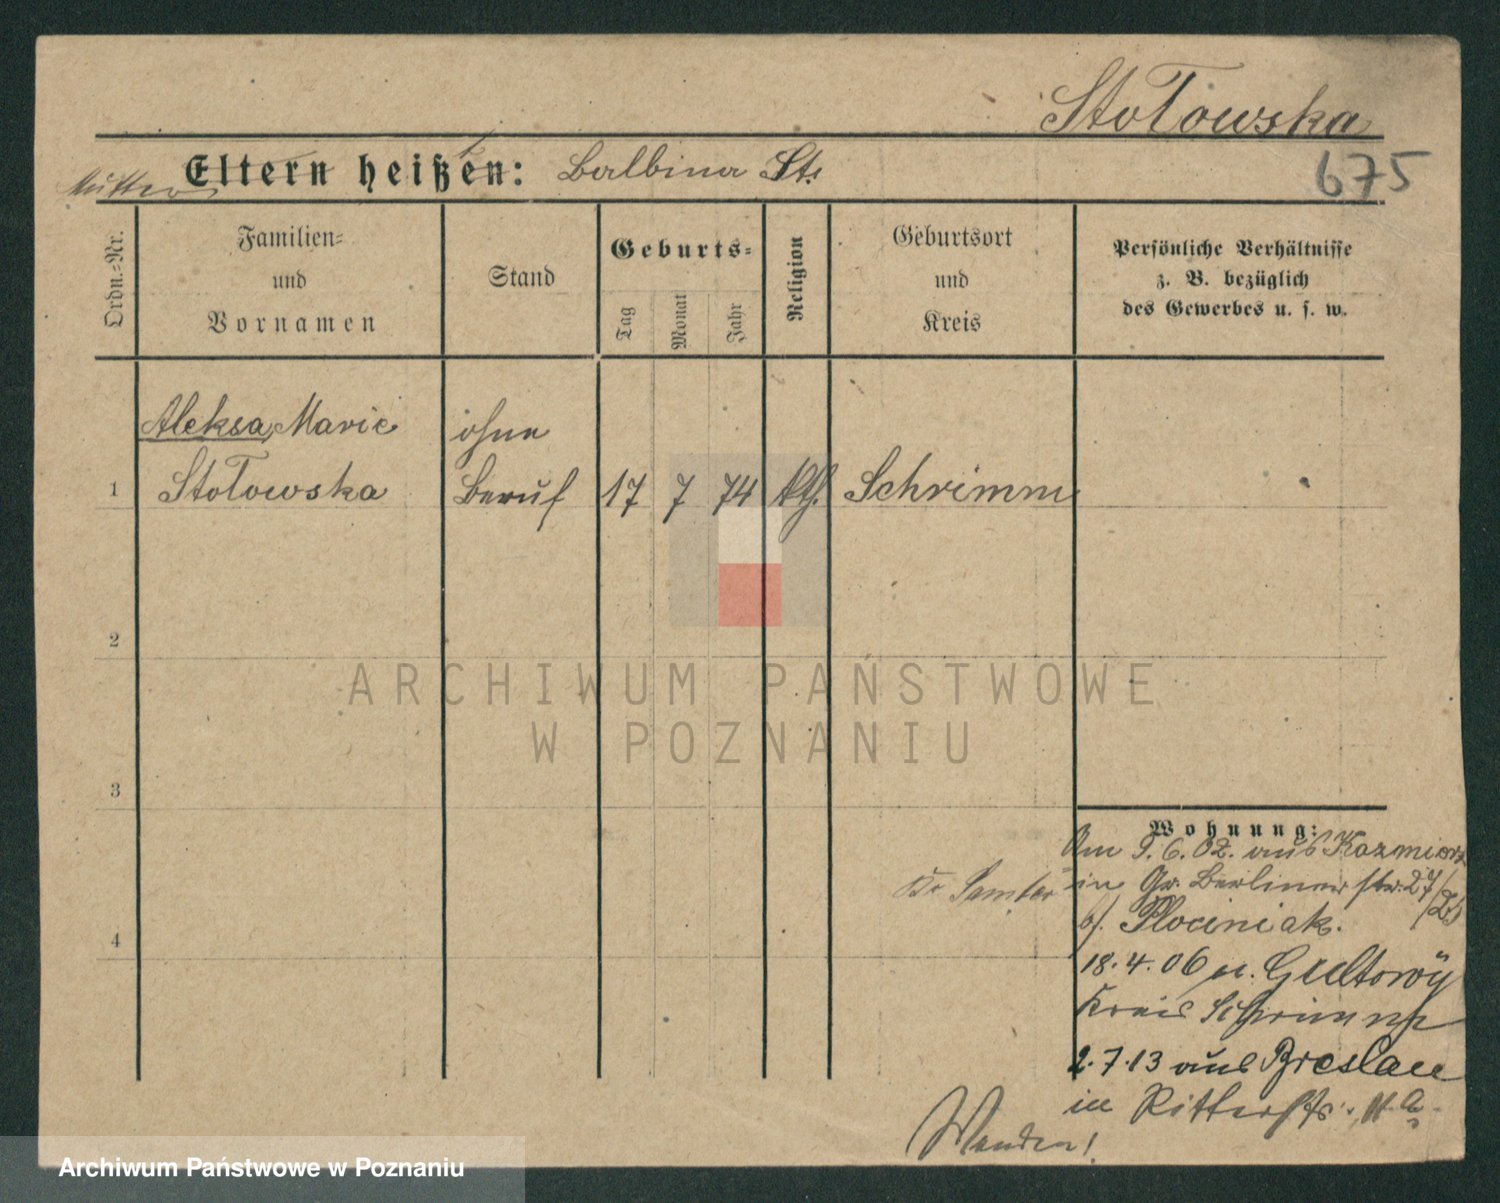 Stołowska
675
Mutter
Eltern heißen: Balbina St.
Ordn.=Nr.
Familien=
und
Vornamen
Stand
Geburts=
Tag
Monat
Jahr
Religion
Geburtsort
und
Kreis
Persönliche Verhältnisse
z. B. bezüglich
des Gewerbes u. s. w.
Aleksa, Marie ohne
1 Stołowska Beruf 17 7 74 kth. Schrimm
2
ARCHIWUM PAŃSTWOWE
W POZNANIU
3
Wohnung:
Am 5.6.02. aus Kazmierz
Kr Samter in Gr. Berliner str. 27/
b/. Plociniak.
18.4.06 n. Gultowÿ
4
Kreis Schrimm
2.7.13 aus Breslau
in Ritterstr.
Wenden!
Archiwum Państwowe w Poznaniu